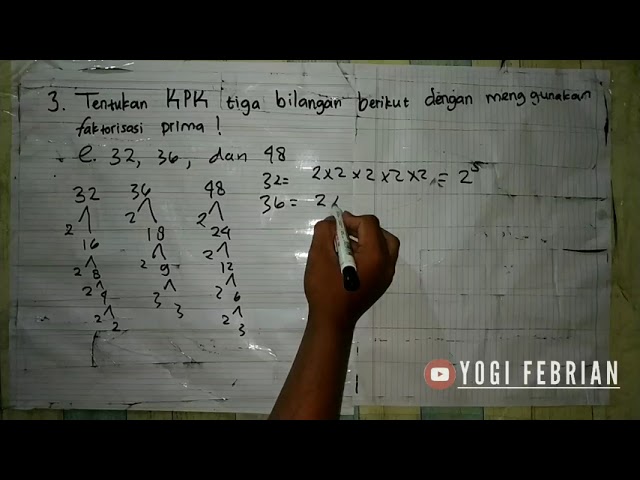 3. Tentukan KPK tiga bilangan berikut dengan menggunakan
faktorisasi prima!
e. 32, 36, dan 48
32 = 2 x 2 x 2 x 2 x 2 = 2⁵
36 = 2 x
32 36 48
2 2 2
16 18 24
2 2 2
8 9 12
2 3 3 2
4 6
2 2 2 3
YOGI FEBRIAN